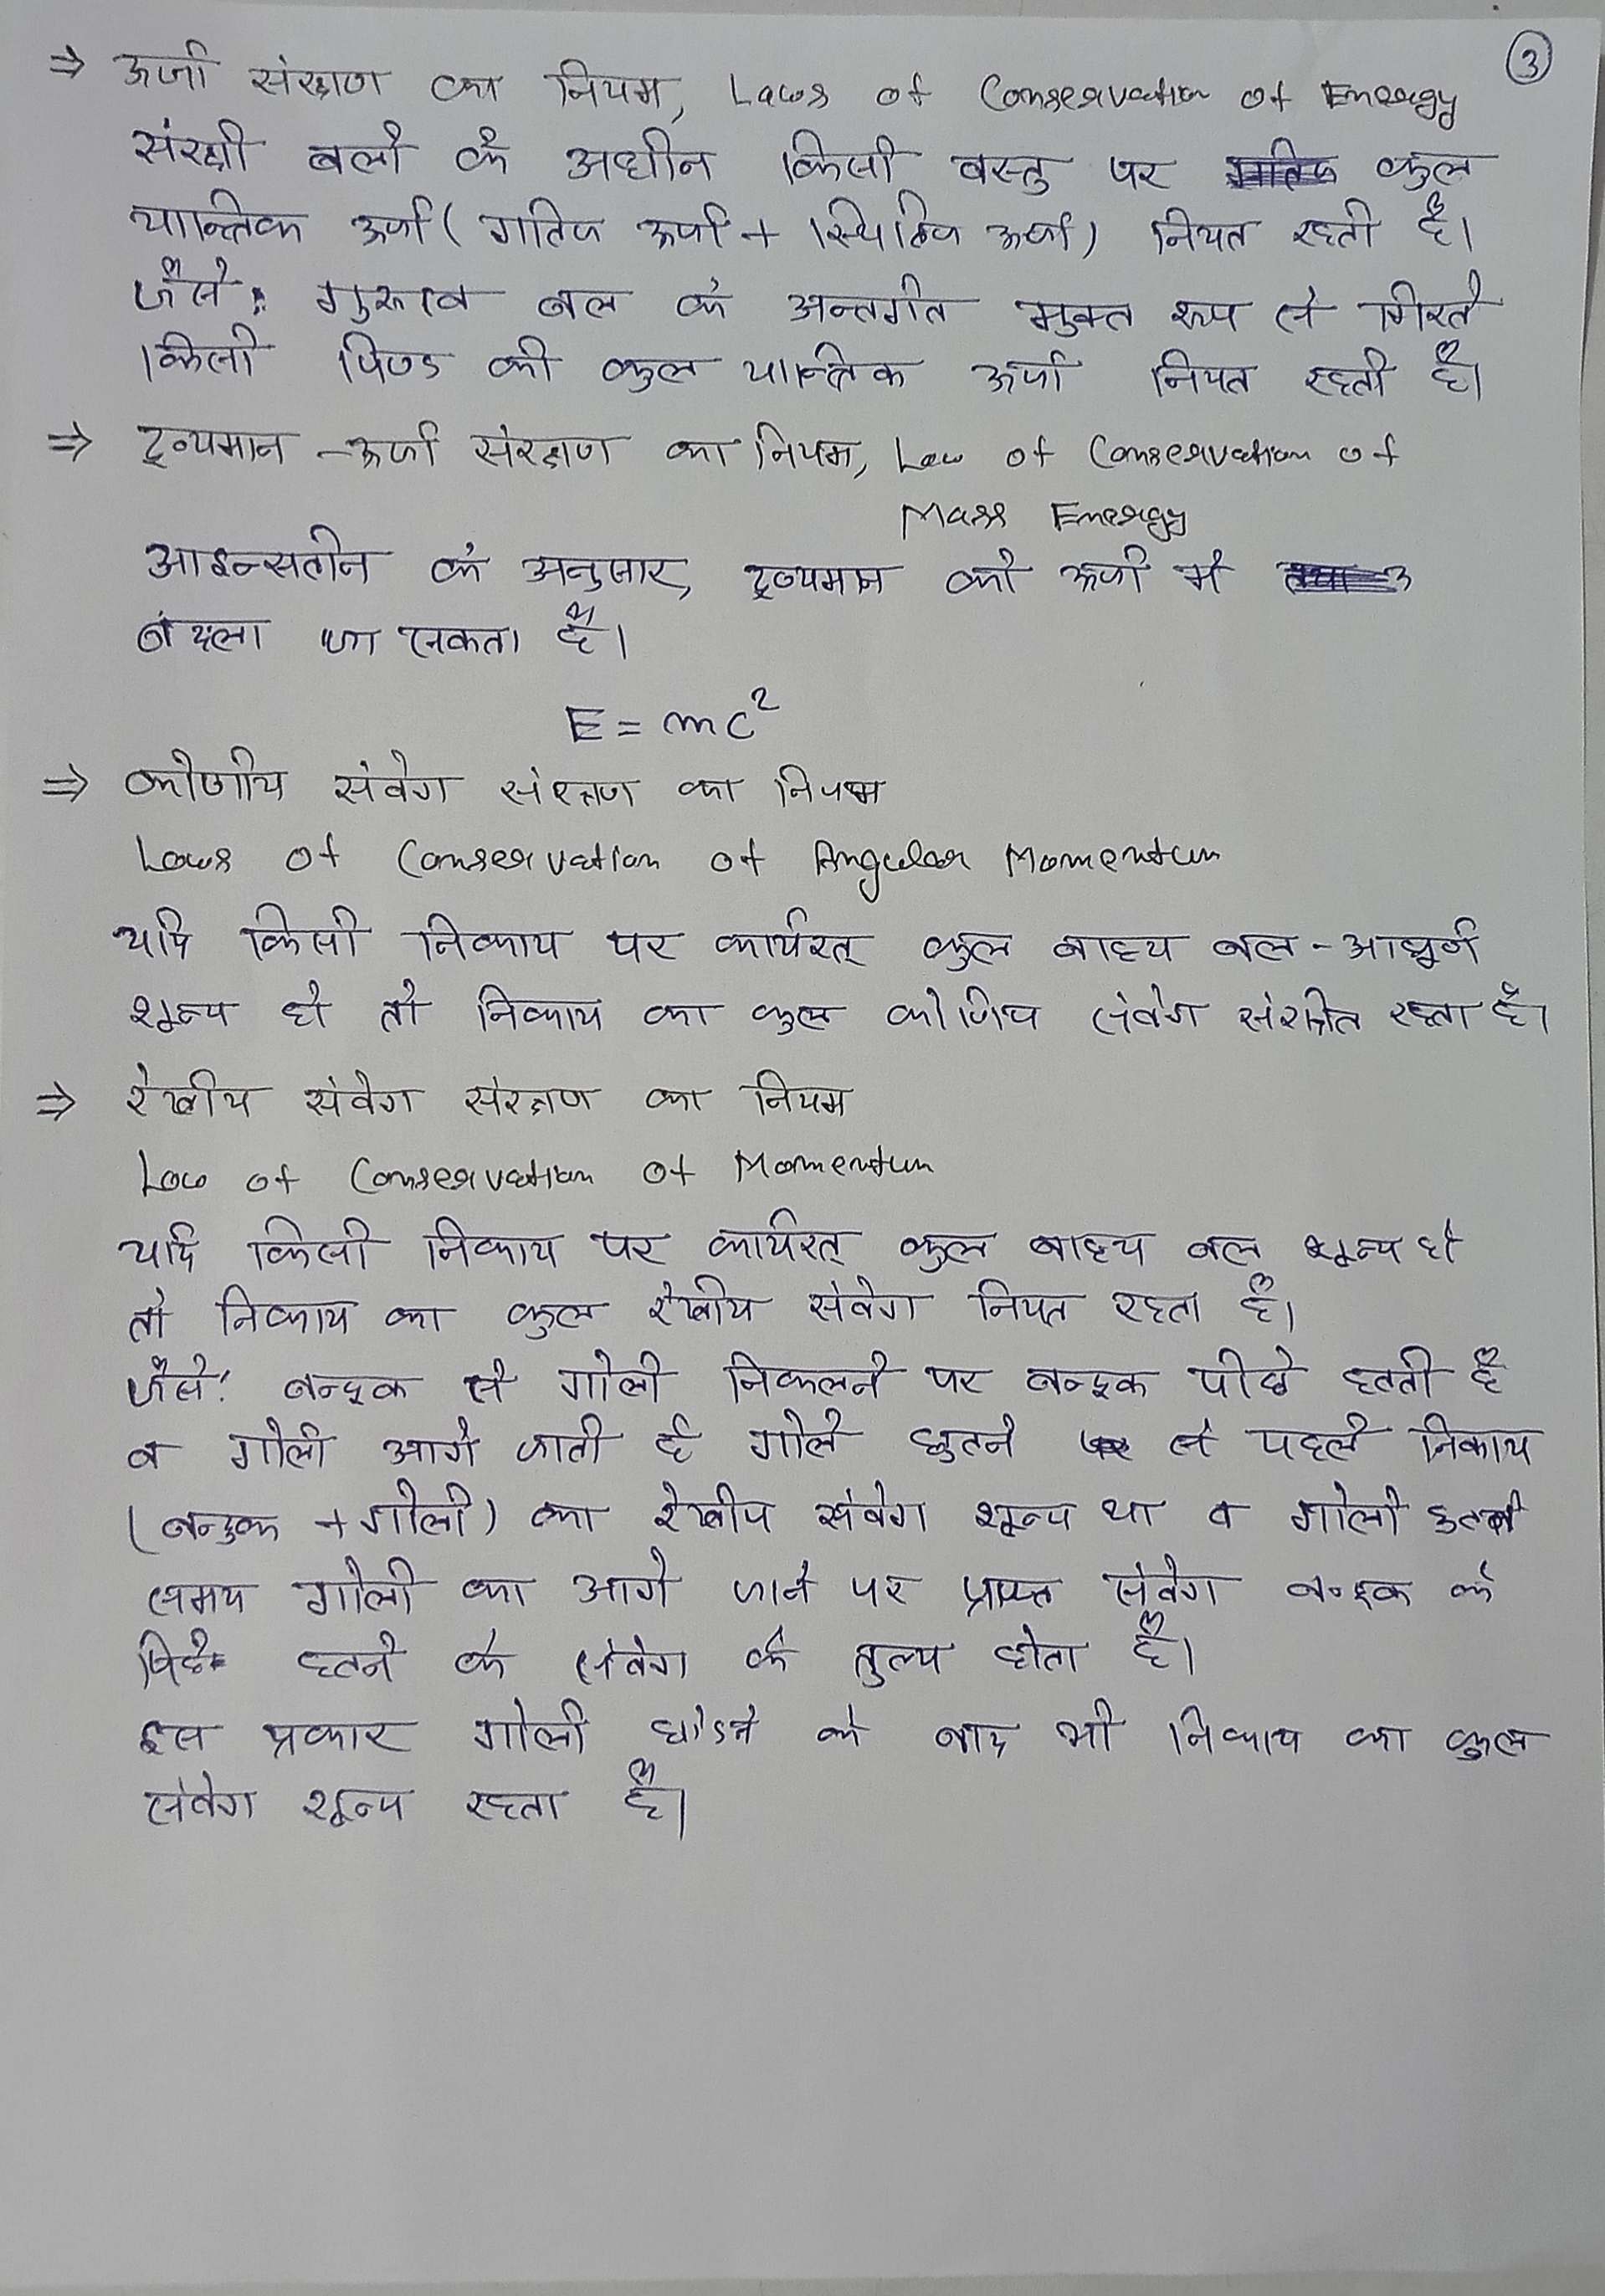 ③
⇒ ऊर्जा संरक्षण का नियम, Laws of Conservation of Energy
संरक्षी बलों के अधीन किसी वस्तु पर कुल
यान्त्रिक ऊर्जा ( गतिज ऊर्जा + स्थितिज ऊर्जा) नियत रहती है।
जैसे: गुरूत्व बल के अन्तर्गत मुक्त रूप से गिरते
किसी पिण्ड की कुल यान्त्रिक ऊर्जा नियत रहती है।
⇒ द्रव्यमान -ऊर्जा संरक्षण का नियम, Law of Conservation of
Mass Energy
आइन्सतीन के अनुसार, द्रव्यमान को ऊर्जा में
बदला जा सकता है।
E = mc²
⇒ कोणीय संवेग संरक्षण का नियम
Laws of Conservation of Angular Momentum
यदि किसी निकाय पर कार्यरत् कुल बाह्य बल - आघूर्ण
शून्य हो तो निकाय का कुल कोणिय संवेग संरक्षित रहता है।
⇒ रेखीय संवेग संरक्षण का नियम
Law of Conservation of Momentum
यदि किसी निकाय पर कार्यरत् कुल बाह्य बल शून्य हो
तो निकाय का कुल रेखीय संवेग नियत रहता है।
जैसे: बन्दूक से गोली निकलने पर बन्दूक पीछे हतती है
व गोली आगे जाती है गोले छुतने से पहले निकाय
(बन्दुक + गोली) का रेखीय संवेग शून्य था व गोली
समय गोली का आगे जाने पर प्राप्त संवेग बन्दूक के
पिछे हतने के संवेग के तुल्य होता है।
इस प्रकार गोली छोडने के बाद भी निकाय का कुल
संवेग शून्य रहता है।